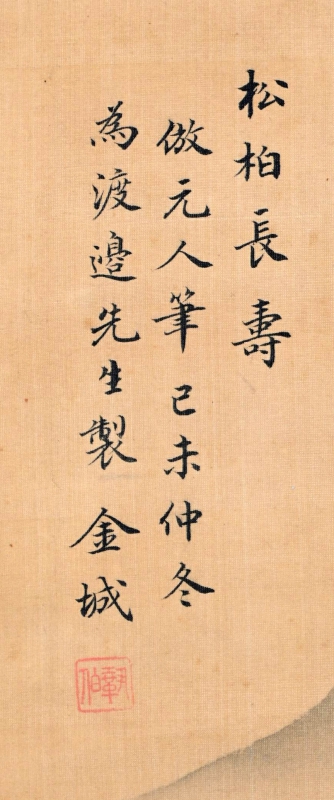 松柏長壽
倣元人筆己未仲冬
為渡邉先生製 金城
鞏伯